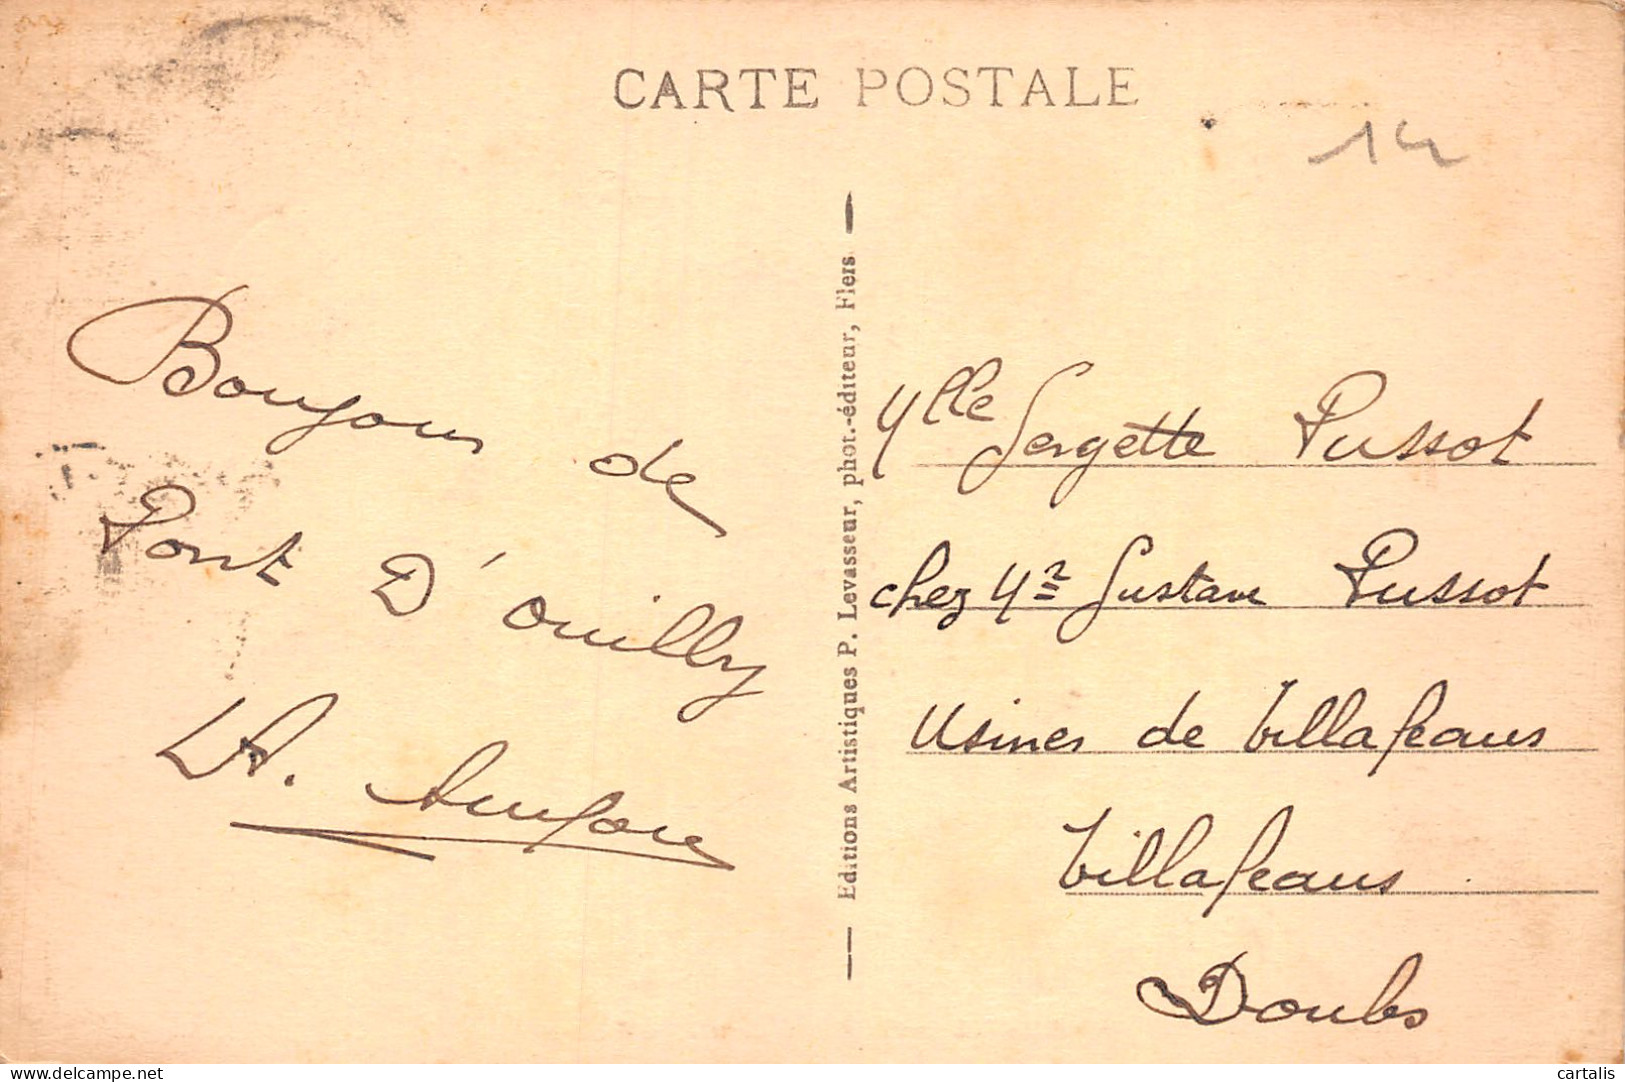 CARTE POSTALE
14
Bonjour de
Pont D'ouilly
Editions Artistiques P. Levasseur, phot.-éditeur, Flers
Mlle Sergette Pussot
chez Mr Gustave Pussot
Usines de Villafeaus
Villafeaus
Doubs
delcampe.net
cartalis